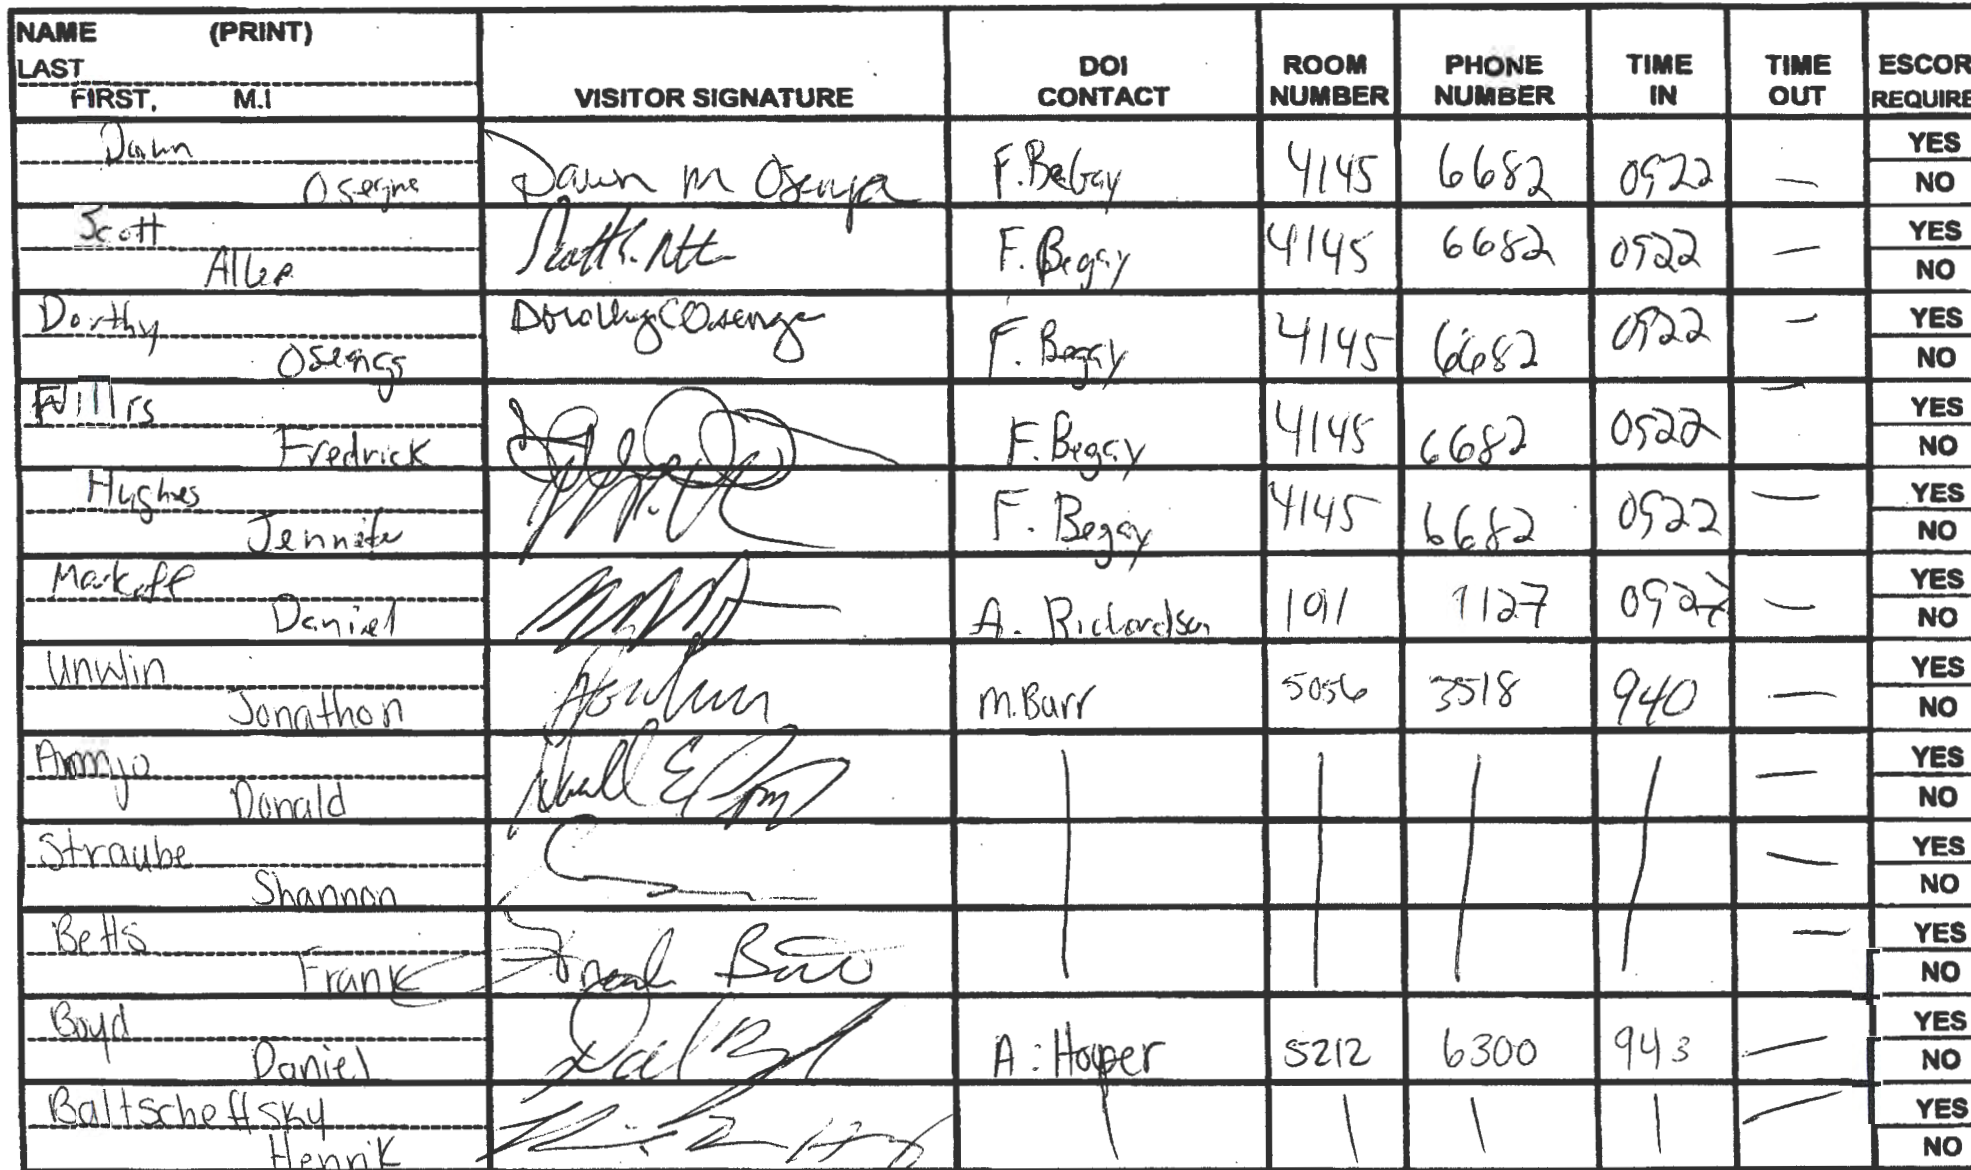 NAME (PRINT)
LAST
FIRST, M.I
VISITOR SIGNATURE
DOI CONTACT
ROOM NUMBER
PHONE NUMBER
TIME IN
TIME OUT
ESCOR
REQUIRE
Dawn
Osegne Dawn M Osenga F. Begay 4145 6682 0922 — YES NO
Scott
Aller F. Begay 4145 6682 0922 — YES NO
Dorthy
Osenga Dorothy C Osenga F. Begay 4145 6682 0922 — YES NO
Fredrick F. Begay 4145 6682 0922 — YES NO
Hughes
Jennifer F. Begay 4145 6682 0922 — YES NO
Markoff
Daniel A. Richardson 191 1127 0927 — YES NO
Unwin
Jonathon M. Burr 5056 3518 940 — YES NO
Armijo
Donald — YES NO
Straube
Shannon — YES NO
Betts
Frank Frank Betts — YES NO
Boyd
Daniel A. Hoyper 5212 6300 943 — YES NO
Baltscheffsky
Henrik — YES NO